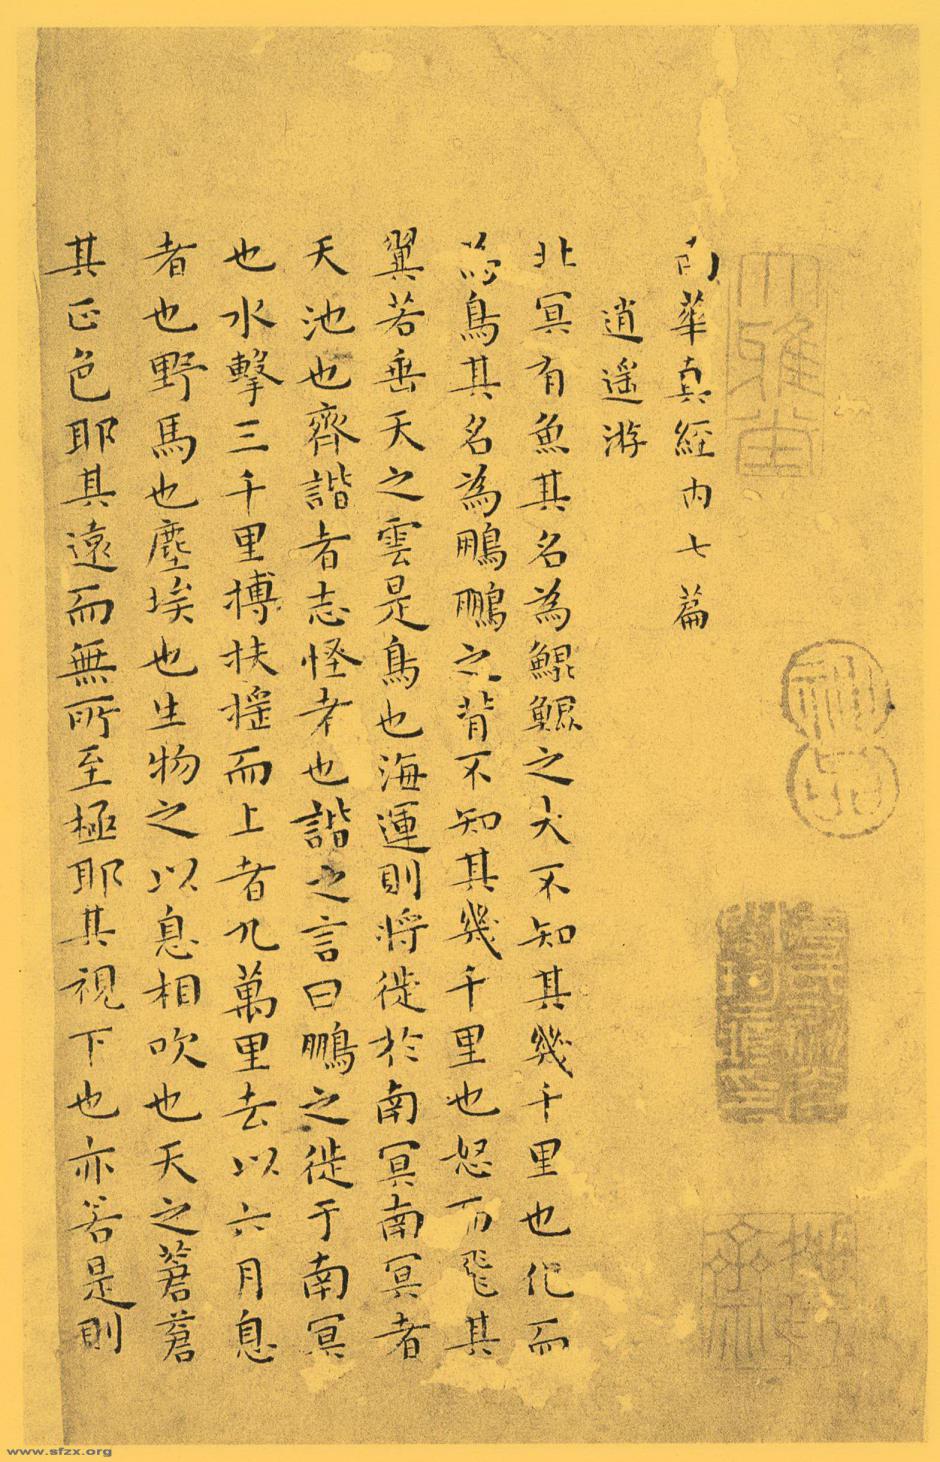 南華真經内七篇
逍遥游
北冥有魚其名為鯤鯤之大不知其幾千里也化而
為鳥其名為鵬鵬之背不知其幾千里也怒而飛其
翼若垂天之雲是鳥也海運則將徙於南冥南冥者
天池也齊諧者志怪者也諧之言曰鵬之徙于南冥
也水擊三千里摶扶摇而上者九萬里去以六月息
者也野馬也塵埃也生物之以息相吹也天之蒼蒼
其正色耶其遠而無所至極耶其視下也亦若是則
大雅堂
www.sfzx.org